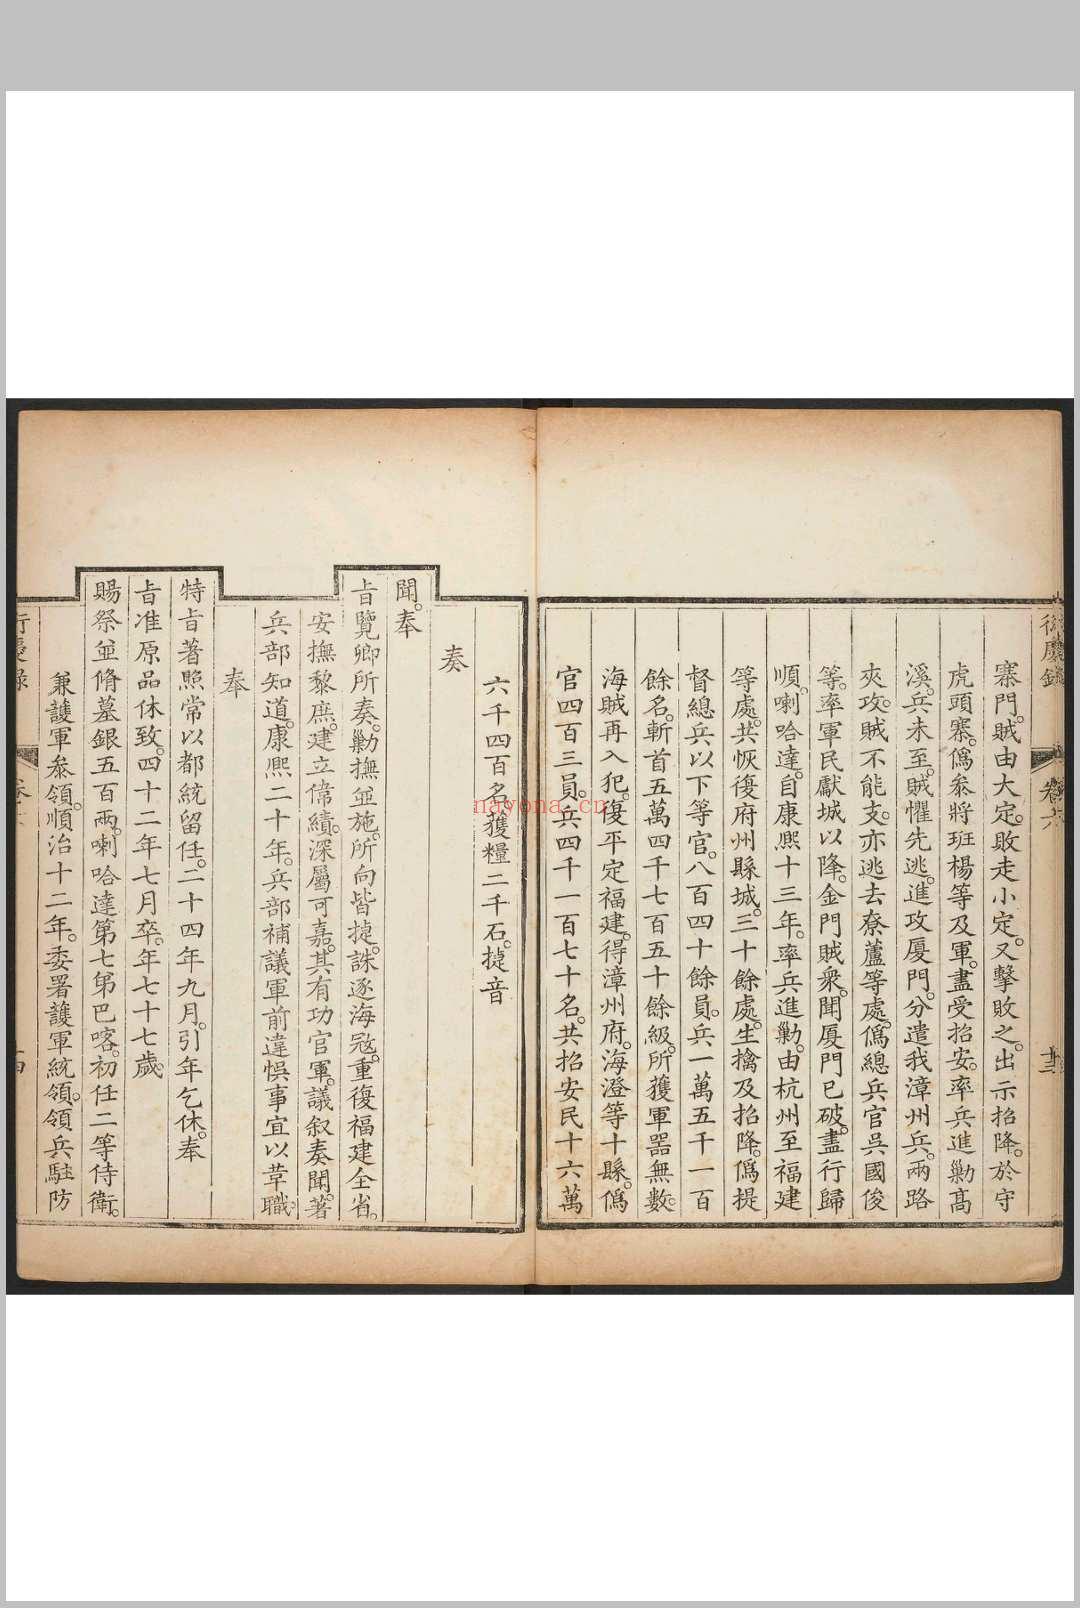 衍慶錄
卷六
十三
寨門。賊由大定。敗走小定。又擊敗之。出示招降。於守
虎頭寨。僞叅將班楊等及軍。盡受招安。率兵進勦高
溪。兵未至。賊懼先逃。進攻厦門。分遣我漳州兵。兩路
夾攻。賊不能支。亦逃去。尞蘆等處。僞總兵官吳國俊
等。率軍民獻城以降。金門賊衆。聞厦門已破。盡行歸
順。喇哈達。自康熙十三年。率兵進勦。由杭州至福建
等處。共恢復府州縣城。三十餘處。生擒及招降。僞提
督總兵以下等官。八百四十餘員。兵一萬五千一百
餘名。斬首五萬四千七百五十餘級。所獲軍器無數。
海賊再入犯。復平定福建。得漳州府。海澄等十縣。僞
官四百三員。兵四千一百七十名。共招安民十六萬
六千四百名。獲糧二千石。捷音
奏
聞。奉
旨覽卿所奏。勦撫並施。所向皆捷。誅逐海寇。重復福建全省。
安撫黎庶。建立偉績。深屬可嘉。其有功官軍。議叙奏聞。著
兵部知道。康熙二十年。兵部補議軍前違悞事宜以革職。
奉
特旨著照常以都統留任。二十四年九月。引年乞休。奉
旨准原品休致。四十二年七月卒。年七十七歲。
賜祭並脩墓銀五百兩。喇哈達第七弟巴喀。初任二等侍衛。
兼護軍叅領。順治十二年。委署護軍統領。領兵駐防
nayona.cn